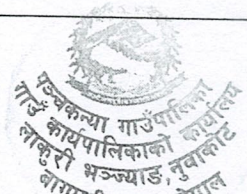 पञ्चकन्या गाउँपालिका
गाउँ कार्यपालिकाको कार्यालय
लाकुरी भञ्ज्याङ, नुवाकोट